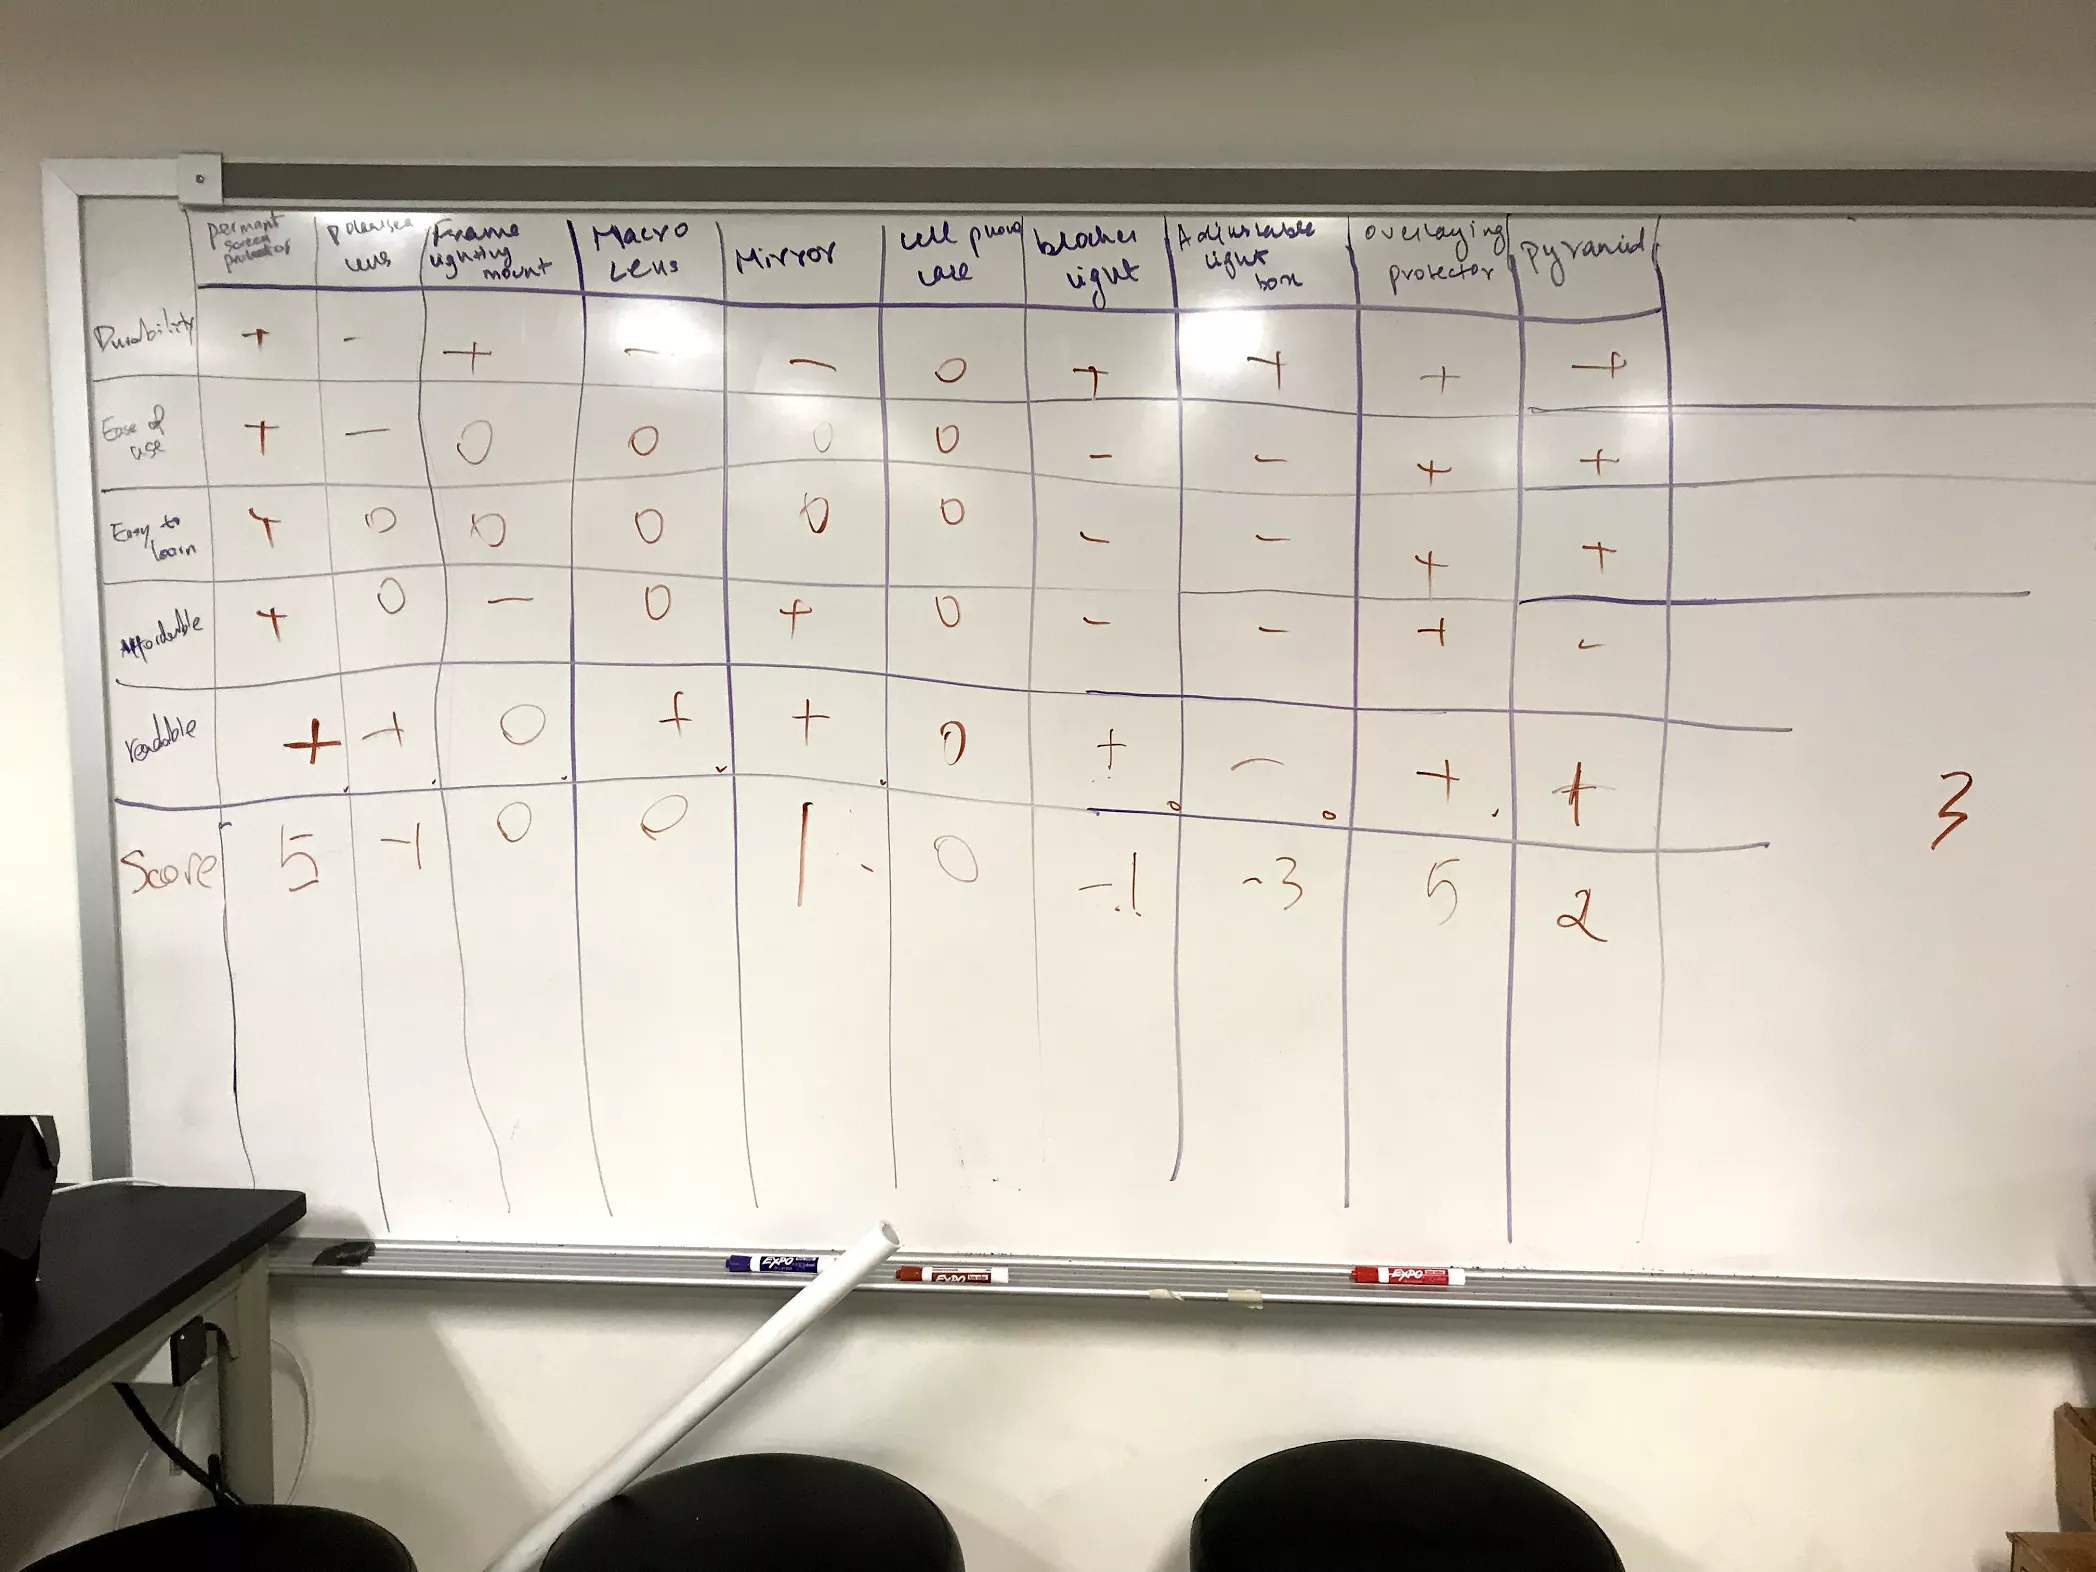 permant screen protector polarised lens Frame lighting mount Macro Lens Mirror cell phone case blocker light Adjustable light box overlaying protector pyramid
Durability + - + - - 0 + + + +
Ease of use + - 0 0 0 0 - - + +
Easy to learn + 0 0 0 0 0 - - + +
Affordable + 0 - 0 + 0 - - + -
readable + + 0 + + 0 + - + +
Score 5 -1 0 0 1 0 -1 -3 5 2
3
EXPO
EXPO
EXPO